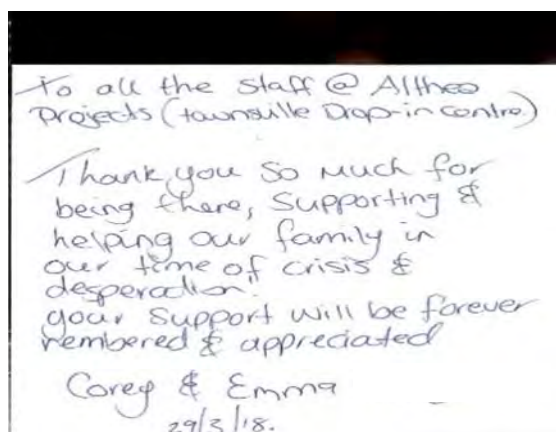 To all the Staff @ Althea
Projects (townsville Drop-in centre)
Thank you So Much for
being there, Supporting &
helping our family in
our time of crisis &
desperation!
your Support will be forever
rembered & appreciated
Corey & Emma
29/3/18.